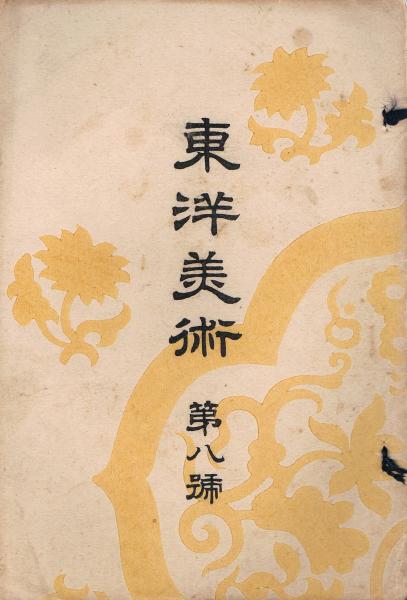 東洋美術
第八號